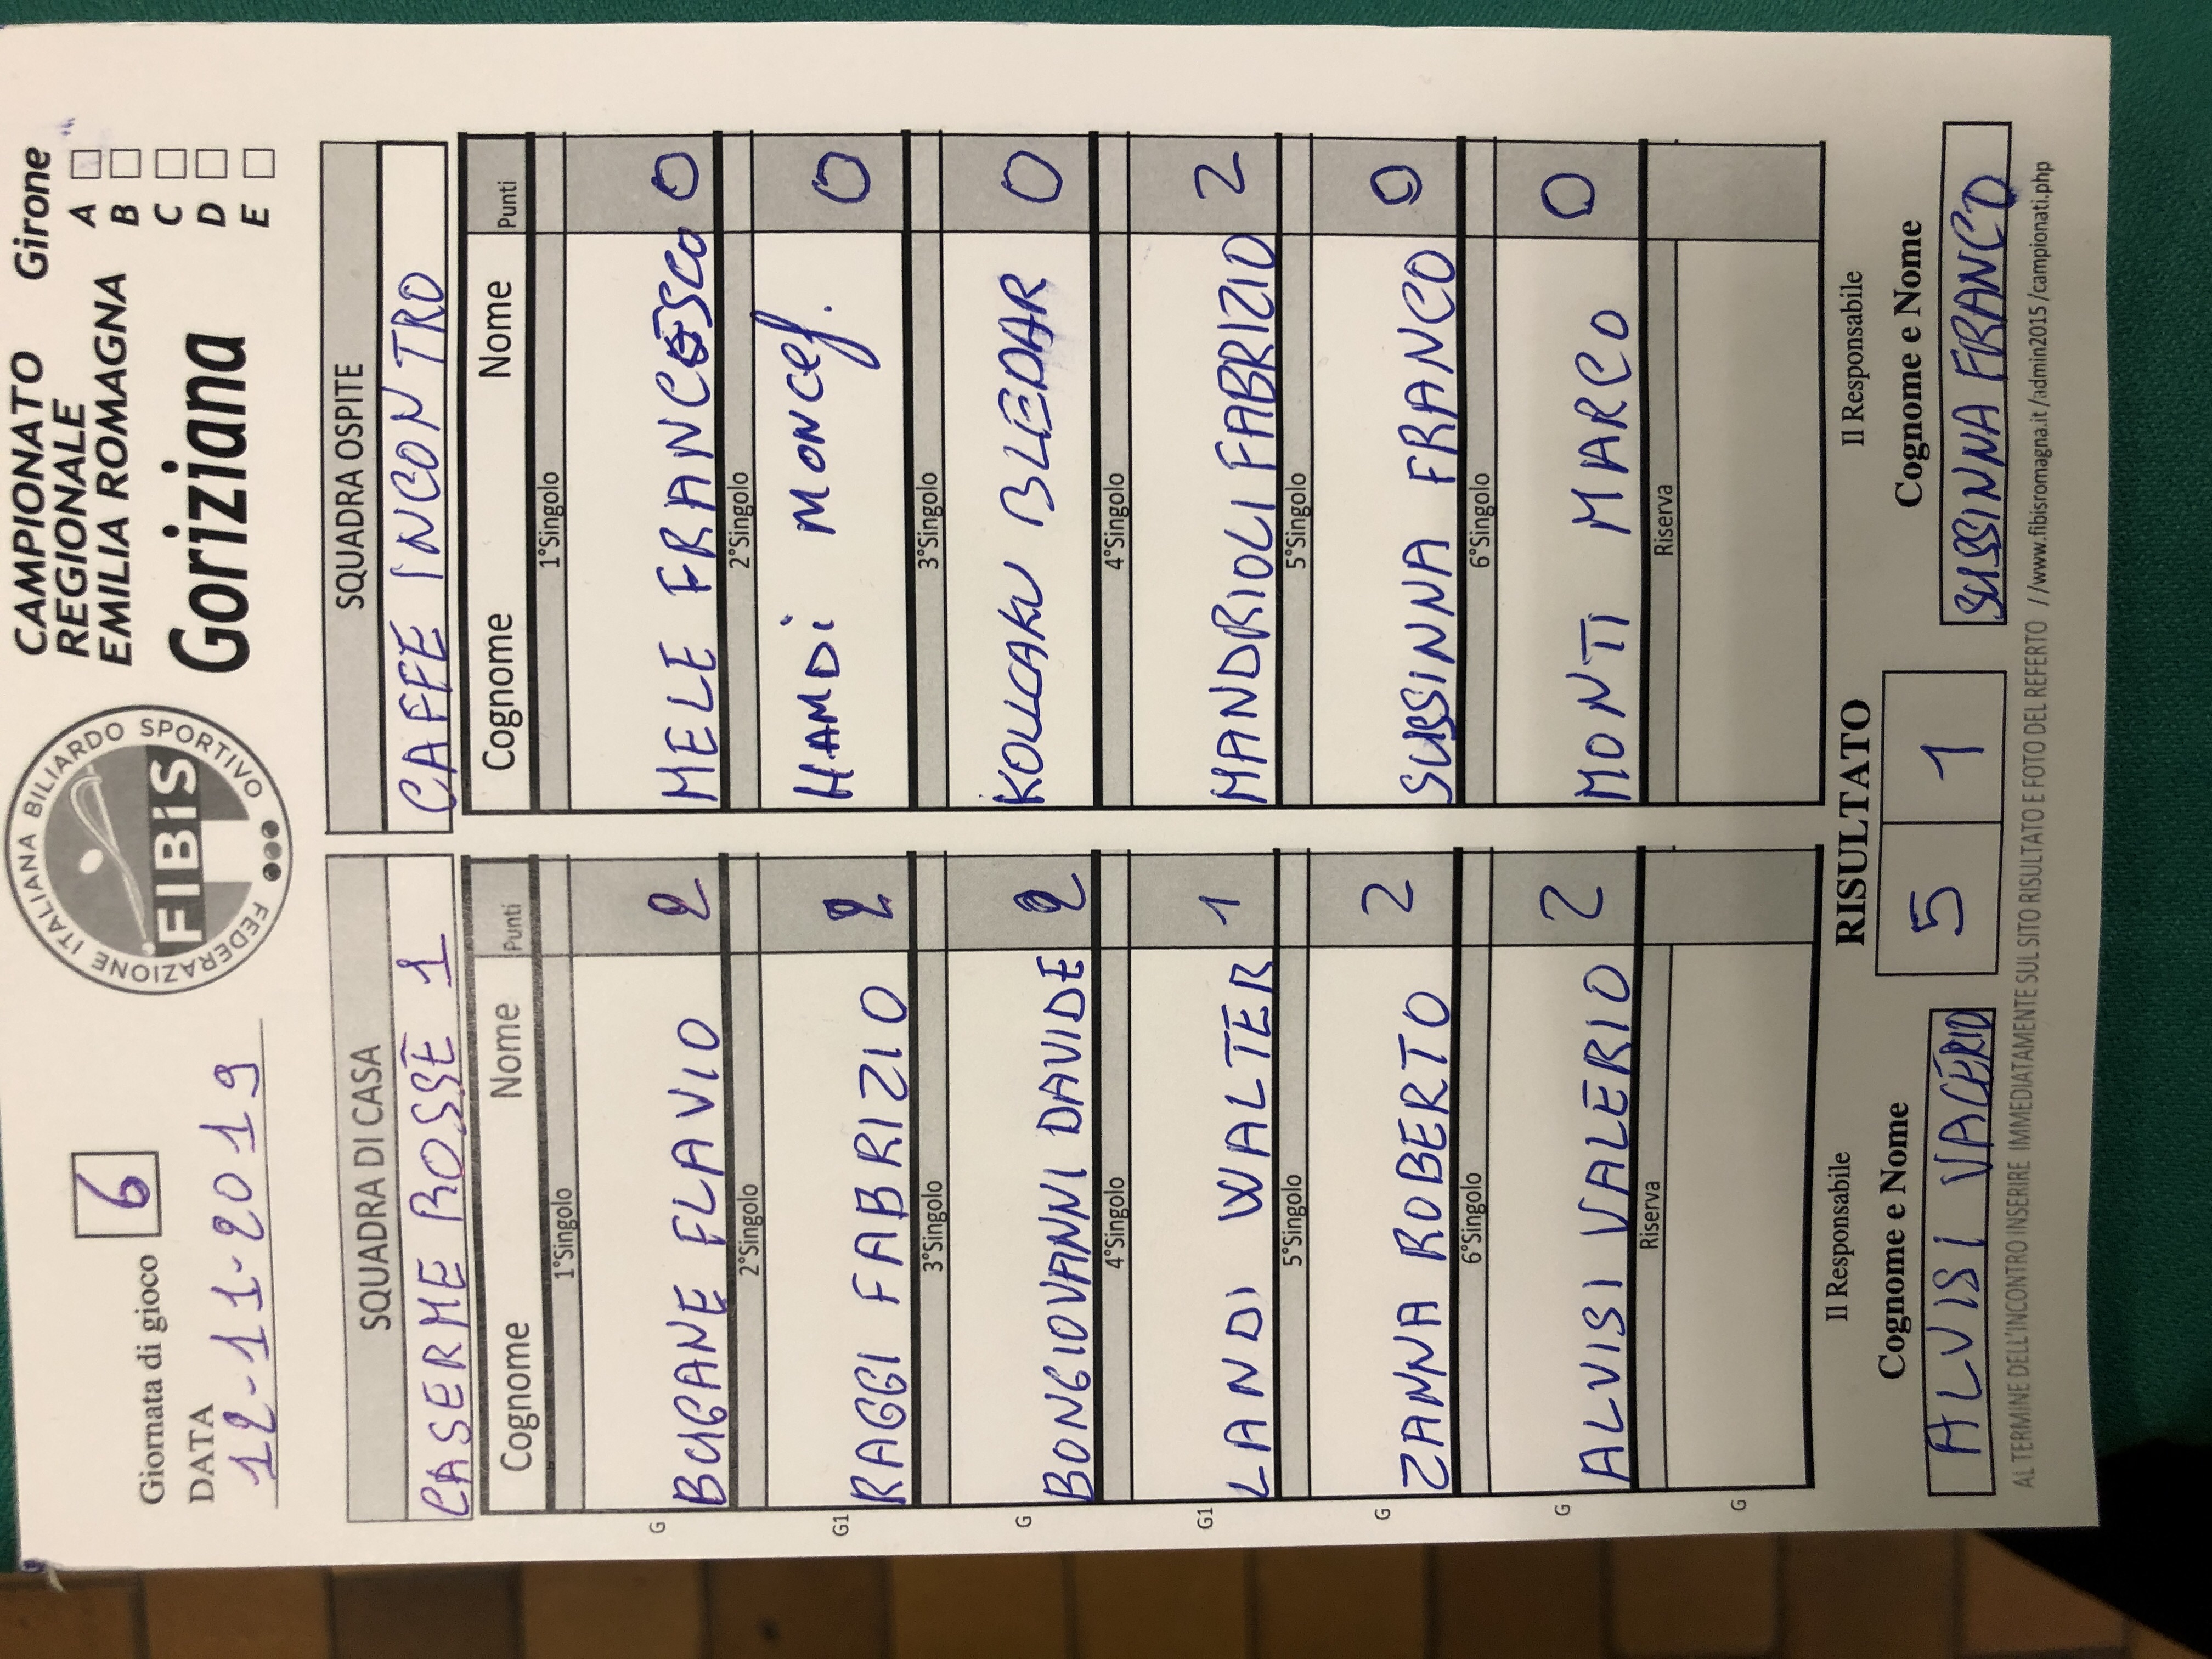 Giornata di gioco 6
DATA
12-11-2019
FEDERAZIONE ITALIANA BILIARDO SPORTIVO
FIBiS
CAMPIONATO
REGIONALE
EMILIA ROMAGNA
Goriziana
Girone
A
B
C
D
E
SQUADRA DI CASA
CASERME ROSSE 1
Cognome Nome Punti
1°Singolo
G BUGANE FLAVIO 2
2°Singolo
G1 RAGGI FABRIZIO 2
3°Singolo
G BONGIOVANNI DAVIDE 2
4°Singolo
G1 LANDI WALTER 1
5°Singolo
G ZANNA ROBERTO 2
6°Singolo
G ALVISI VALERIO 2
Riserva
G
SQUADRA OSPITE
CAFFE INCONTRO
Cognome Nome Punti
1°Singolo
MELE FRANCESCO 0
2°Singolo
HAMDi MONCef. 0
3°Singolo
KOLLCAKU BLEDAR 0
4°Singolo
MANDRIOLI FABRIZIO 2
5°Singolo
SUSSINNA FRANCO 0
6°Singolo
MONTI MARCO 0
Riserva
Il Responsabile
Cognome e Nome
ALVISI VALERIO
RISULTATO
5 1
Il Responsabile
Cognome e Nome
SUSSINNA FRANCO
AL TERMINE DELL'INCONTRO INSERIRE IMMEDIATAMENTE SUL SITO RISULTATO E FOTO DEL REFERTO //www.fibisromagna.it/admin2015/campionati.php